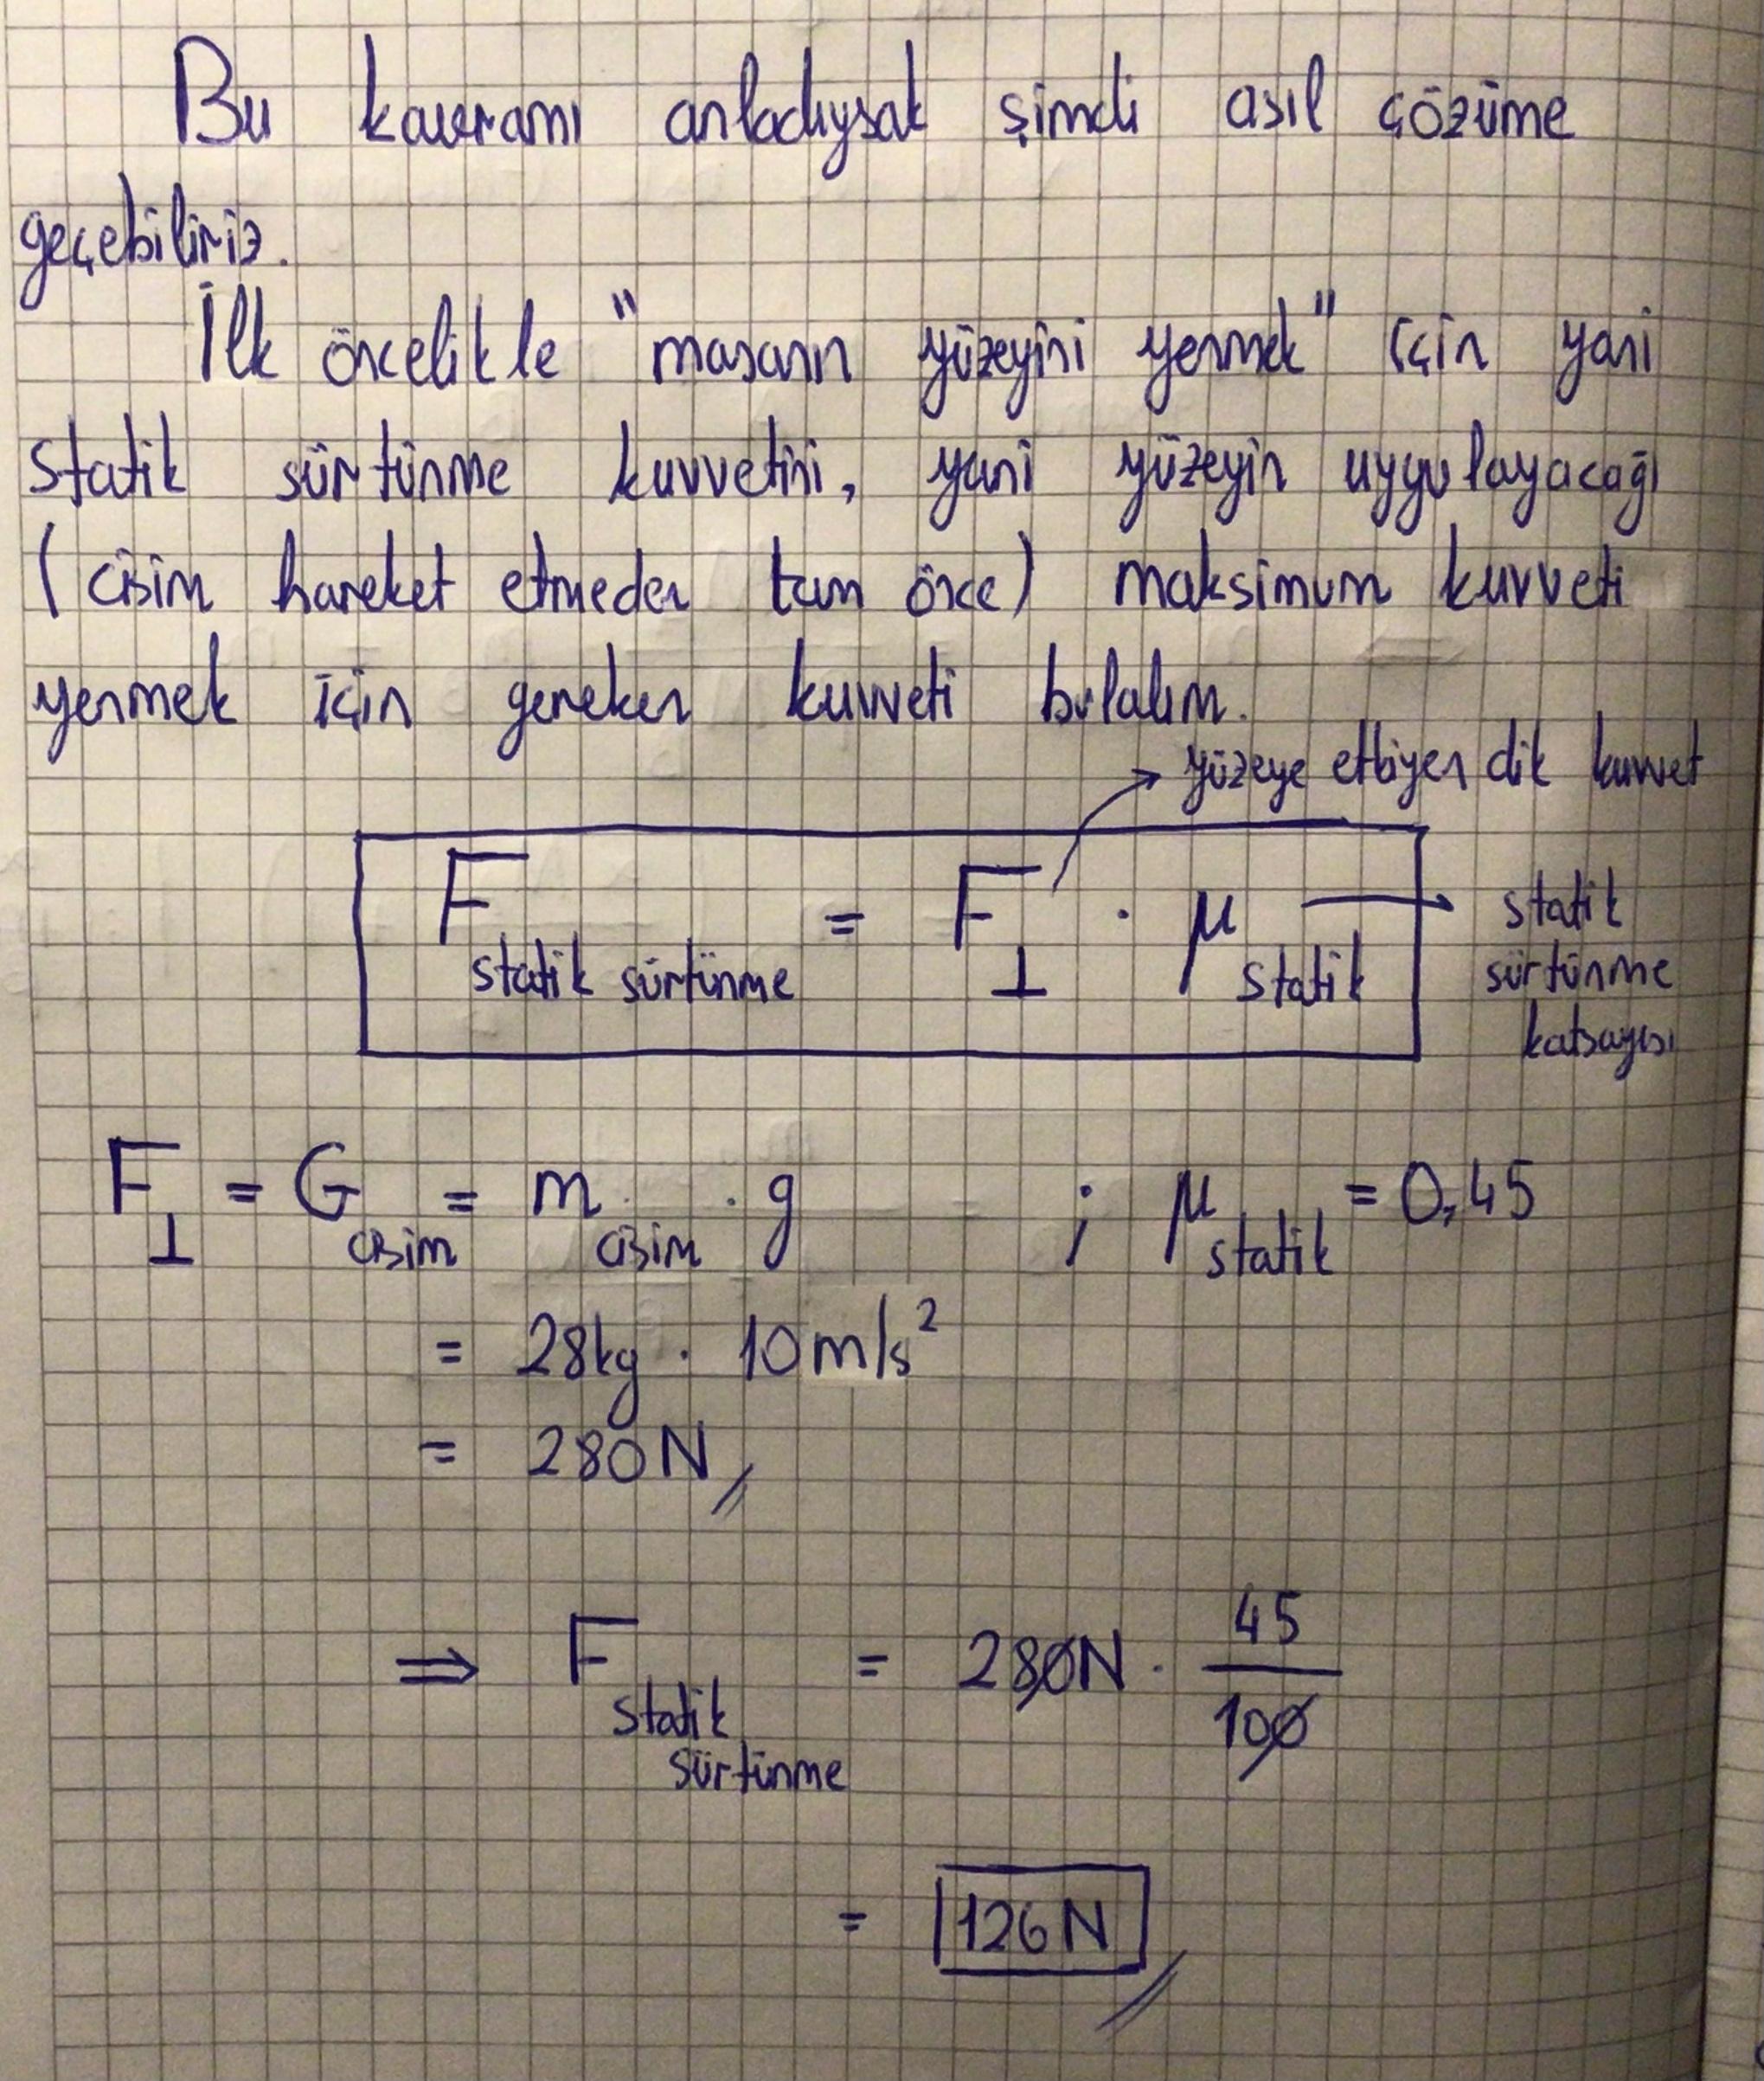 Bu kavramı anladıysak şimdi asıl çözüme
geçebiliriz.
İlk öncelikle "masanın yüzeyini yenmek" için yani
statik sürtünme kuvvetini, yani yüzeyin uygulayacağı
(cisim hareket etmeden tam önce) maksimum kuvveti
yenmek için gereken kuvveti bulalım.
→ yüzeye etkiyen dik kuvvet
F statik sürtünme = F⊥ · μ statik → statik
sürtünme
katsayısı
F⊥ = G cisim = m cisim · g ; μ statik = 0,45
= 28kg · 10 m/s²
= 280 N
⇒ F statik sürtünme = 280N · 45/100
= 126 N